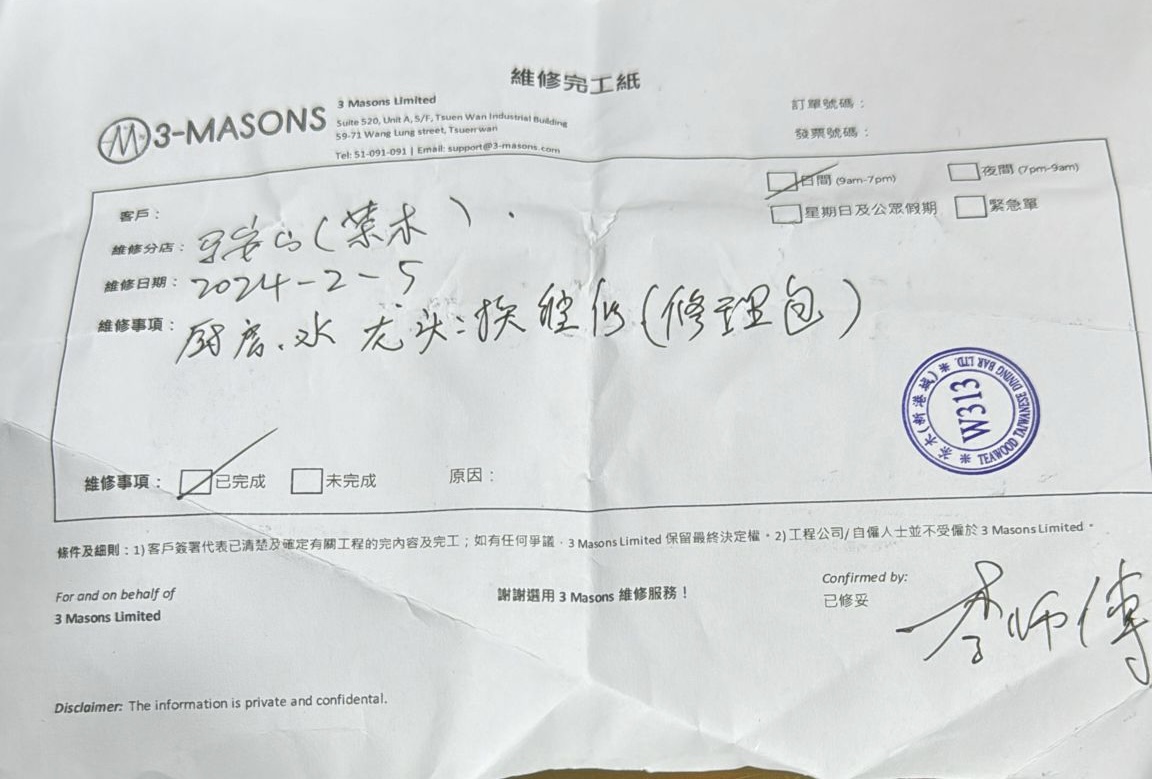 維修完工紙
3-MASONS
3 Masons Limited
Suite 520, Unit A, 5/F, Tsuen Wan Industrial Building
59-71 Wang Lung street, Tsuen wan
Tel: 51-091-091 | Email: support@3-masons.com
訂單號碼：
發票號碼：
日間 (9am-7pm)
夜間 (7pm-9am)
星期日及公眾假期
緊急單
客戶：
維修分店： (茶木)
維修日期： 2024-2-5
維修事項： 厨房、水龙头:换 (修理包)
茶木(新港城) * TEAWOOD TAIWANESE DINING BAR LTD. *
W313
維修事項： 已完成 未完成 原因：
條件及細則：1) 客戶簽署代表已清楚及確定有關工程的完內容及完工；如有任何爭議，3 Masons Limited 保留最終決定權。2) 工程公司/自僱人士並不受僱於 3 Masons Limited。
For and on behalf of
3 Masons Limited
謝謝選用 3 Masons 維修服務！
Confirmed by:
已修妥
李师傅
Disclaimer: The information is private and confidental.